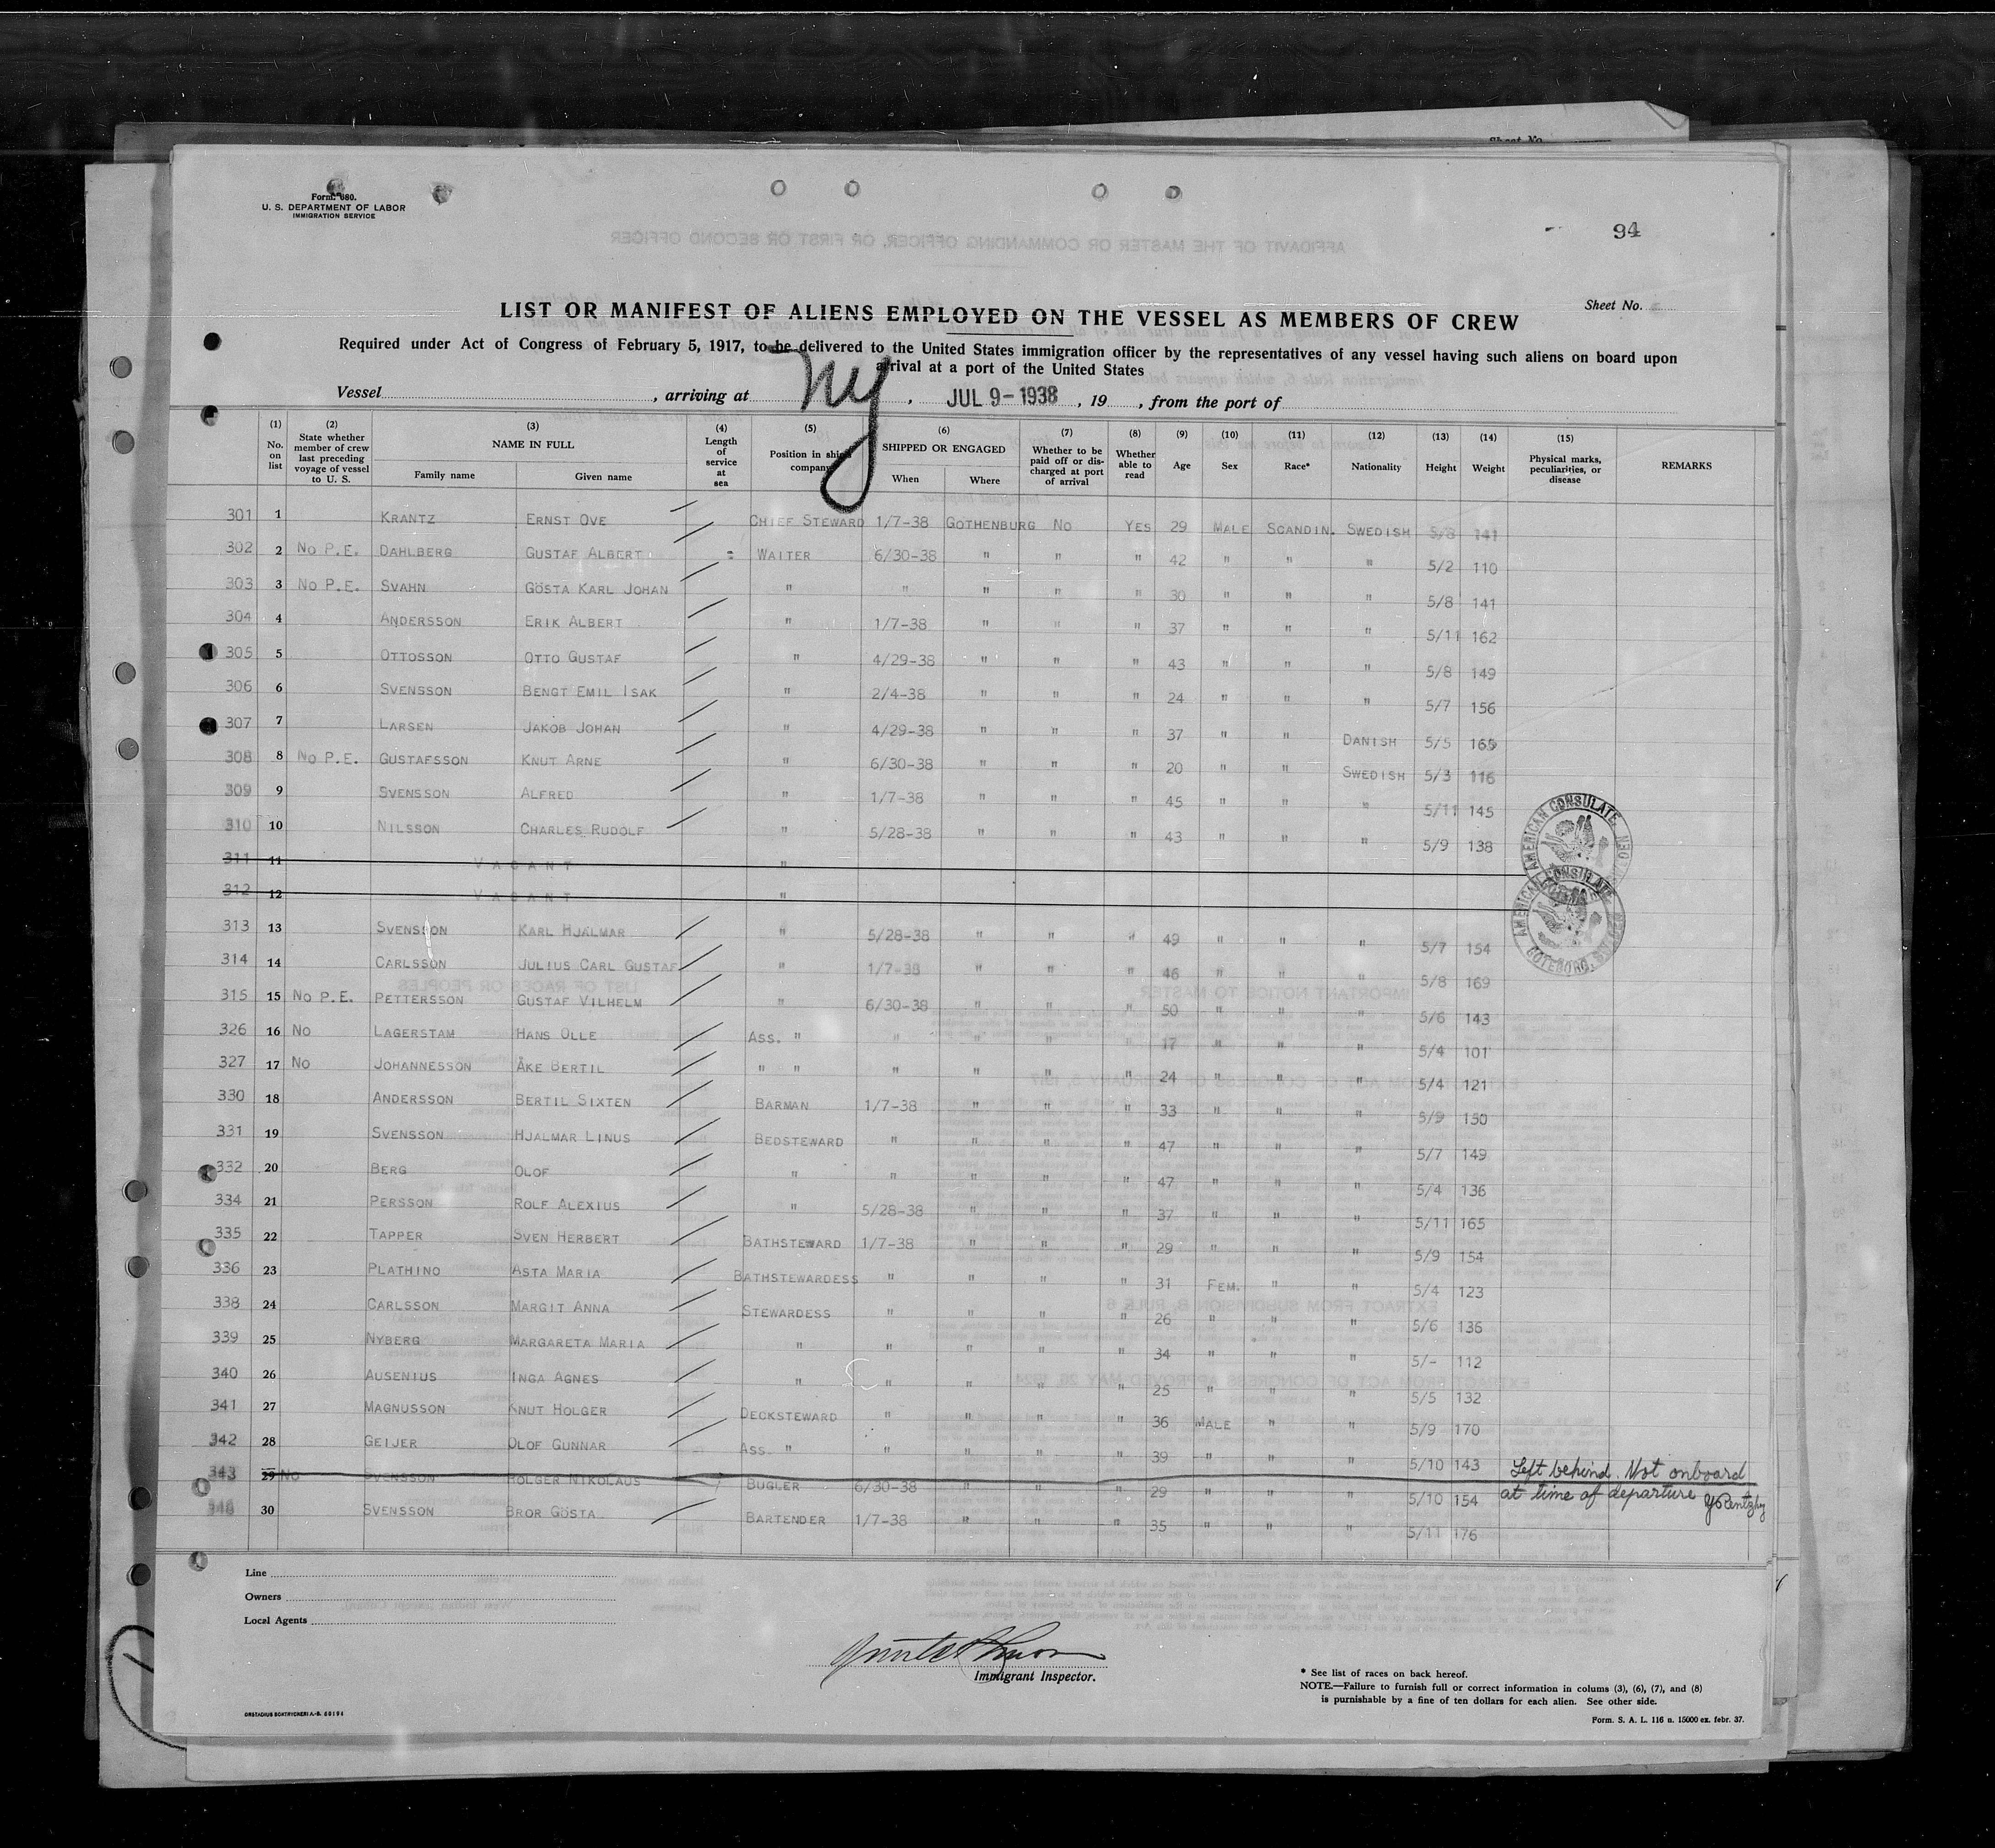 Sheet No.
Form 680.
U. S. DEPARTMENT OF LABOR
IMMIGRATION SERVICE
94
AFFIDAVIT OF THE MASTER OR COMMANDING OFFICER, OR FIRST OR SECOND OFFICER
Sheet No.
LIST OR MANIFEST OF ALIENS EMPLOYED ON THE VESSEL AS MEMBERS OF CREW
Required under Act of Congress of February 5, 1917, to be delivered to the United States immigration officer by the representatives of any vessel having such aliens on board upon
arrival at a port of the United States
Vessel , arriving at Ny , JUL 9-1938 , 19 , from the port of
(1) No. on list (2) State whether member of crew last preceding voyage of vessel to U. S. (3) NAME IN FULL Family name Given name (4) Length of service at sea (5) Position in ship's company (6) SHIPPED OR ENGAGED When Where (7) Whether to be paid off or discharged at port of arrival (8) Whether able to read (9) Age (10) Sex (11) Race* (12) Nationality (13) Height (14) Weight (15) Physical marks, peculiarities, or disease REMARKS
301 1 KRANTZ ERNST OVE CHIEF STEWARD 1/7-38 GOTHENBURG NO YES 29 MALE SCANDIN. SWEDISH 5/8 141
302 2 NO P.E. DAHLBERG GUSTAF ALBERT WAITER 6/30-38 " " " 42 " " " 5/2 110
303 3 NO P.E. SVAHN GÖSTA KARL JOHAN " " " " " 30 " " " 5/8 141
304 4 ANDERSSON ERIK ALBERT " 1/7-38 " " " 37 " " " 5/11 162
305 5 OTTOSSON OTTO GUSTAF " 4/29-38 " " " 43 " " " 5/8 149
306 6 SVENSSON BENGT EMIL ISAK " 2/4-38 " " " 24 " " " 5/7 156
307 7 LARSEN JAKOB JOHAN " 4/29-38 " " " 37 " " DANISH 5/5 165
308 8 NO P.E. GUSTAFSSON KNUT ARNE " 6/30-38 " " " 20 " " SWEDISH 5/3 116
309 9 SVENSSON ALFRED " 1/7-38 " " " 45 " " " 5/11 145
310 10 NILSSON CHARLES RUDOLF " 5/28-38 " " " 43 " " " 5/9 138
311 11 VACANT "
312 12 VACANT "
AMERICAN CONSULATE
AMERICAN CONSULATE GÖTEBORG, SWEDEN
313 13 SVENSSON KARL HJALMAR " 5/28-38 " " " 49 " " " 5/7 154
314 14 CARLSSON JULIUS CARL GUSTAF " 1/7-38 " " " 46 " " " 5/8 169
315 15 NO P.E. PETTERSSON GUSTAF VILHELM " 6/30-38 " " " 50 " " " 5/6 143
326 16 NO LAGERSTAM HANS OLLE ASS. " " " " " 17 " " " 5/4 101
327 17 NO JOHANNESSON ÅKE BERTIL " " " " " " 24 " " " 5/4 121
330 18 ANDERSSON BERTIL SIXTEN BARMAN 1/7-38 " " " 33 " " " 5/9 150
331 19 SVENSSON HJALMAR LINUS BEDSTEWARD " " " " 47 " " " 5/7 149
332 20 BERG OLOF " " " " " 47 " " " 5/4 136
334 21 PERSSON ROLF ALEXIUS " 5/28-38 " " " 37 " " " 5/11 165
335 22 TAPPER SVEN HERBERT BATHSTEWARD 1/7-38 " " " 29 " " " 5/9 154
336 23 PLATHINO ASTA MARIA BATHSTEWARDESS " " " " 31 FEM. " " 5/4 123
338 24 CARLSSON MARGIT ANNA STEWARDESS " " " " 26 " " " 5/6 136
339 25 NYBERG MARGARETA MARIA " " " " " 34 " " " 5/- 112
340 26 AUSENIUS INGA AGNES " " " " " 25 " " " 5/5 132
341 27 MAGNUSSON KNUT HOLGER DECKSTEWARD " " " " 36 MALE " " 5/9 170
342 28 GEIJER OLOF GUNNAR ASS. " " " " " 39 " " " 5/10 143
343 29 NO SVENSSON HOLGER NIKOLAUS BUGLER 6/30-38 " " " 29 " " " 5/10 154 Left behind. Not onboard
at time of departure
346 30 SVENSSON BROR GÖSTA BARTENDER 1/7-38 " " " 35 " " " 5/11 176
Line
Owners
Local Agents
Immigrant Inspector.
* See list of races on back hereof.
NOTE.—Failure to furnish full or correct information in colums (3), (6), (7), and (8)
is punishable by a fine of ten dollars for each alien. See other side.
ORSTADIUS BOKTRYCKERI A.-B. 60194
Form. S. A. L. 116 a. 15000 ex. febr. 37.